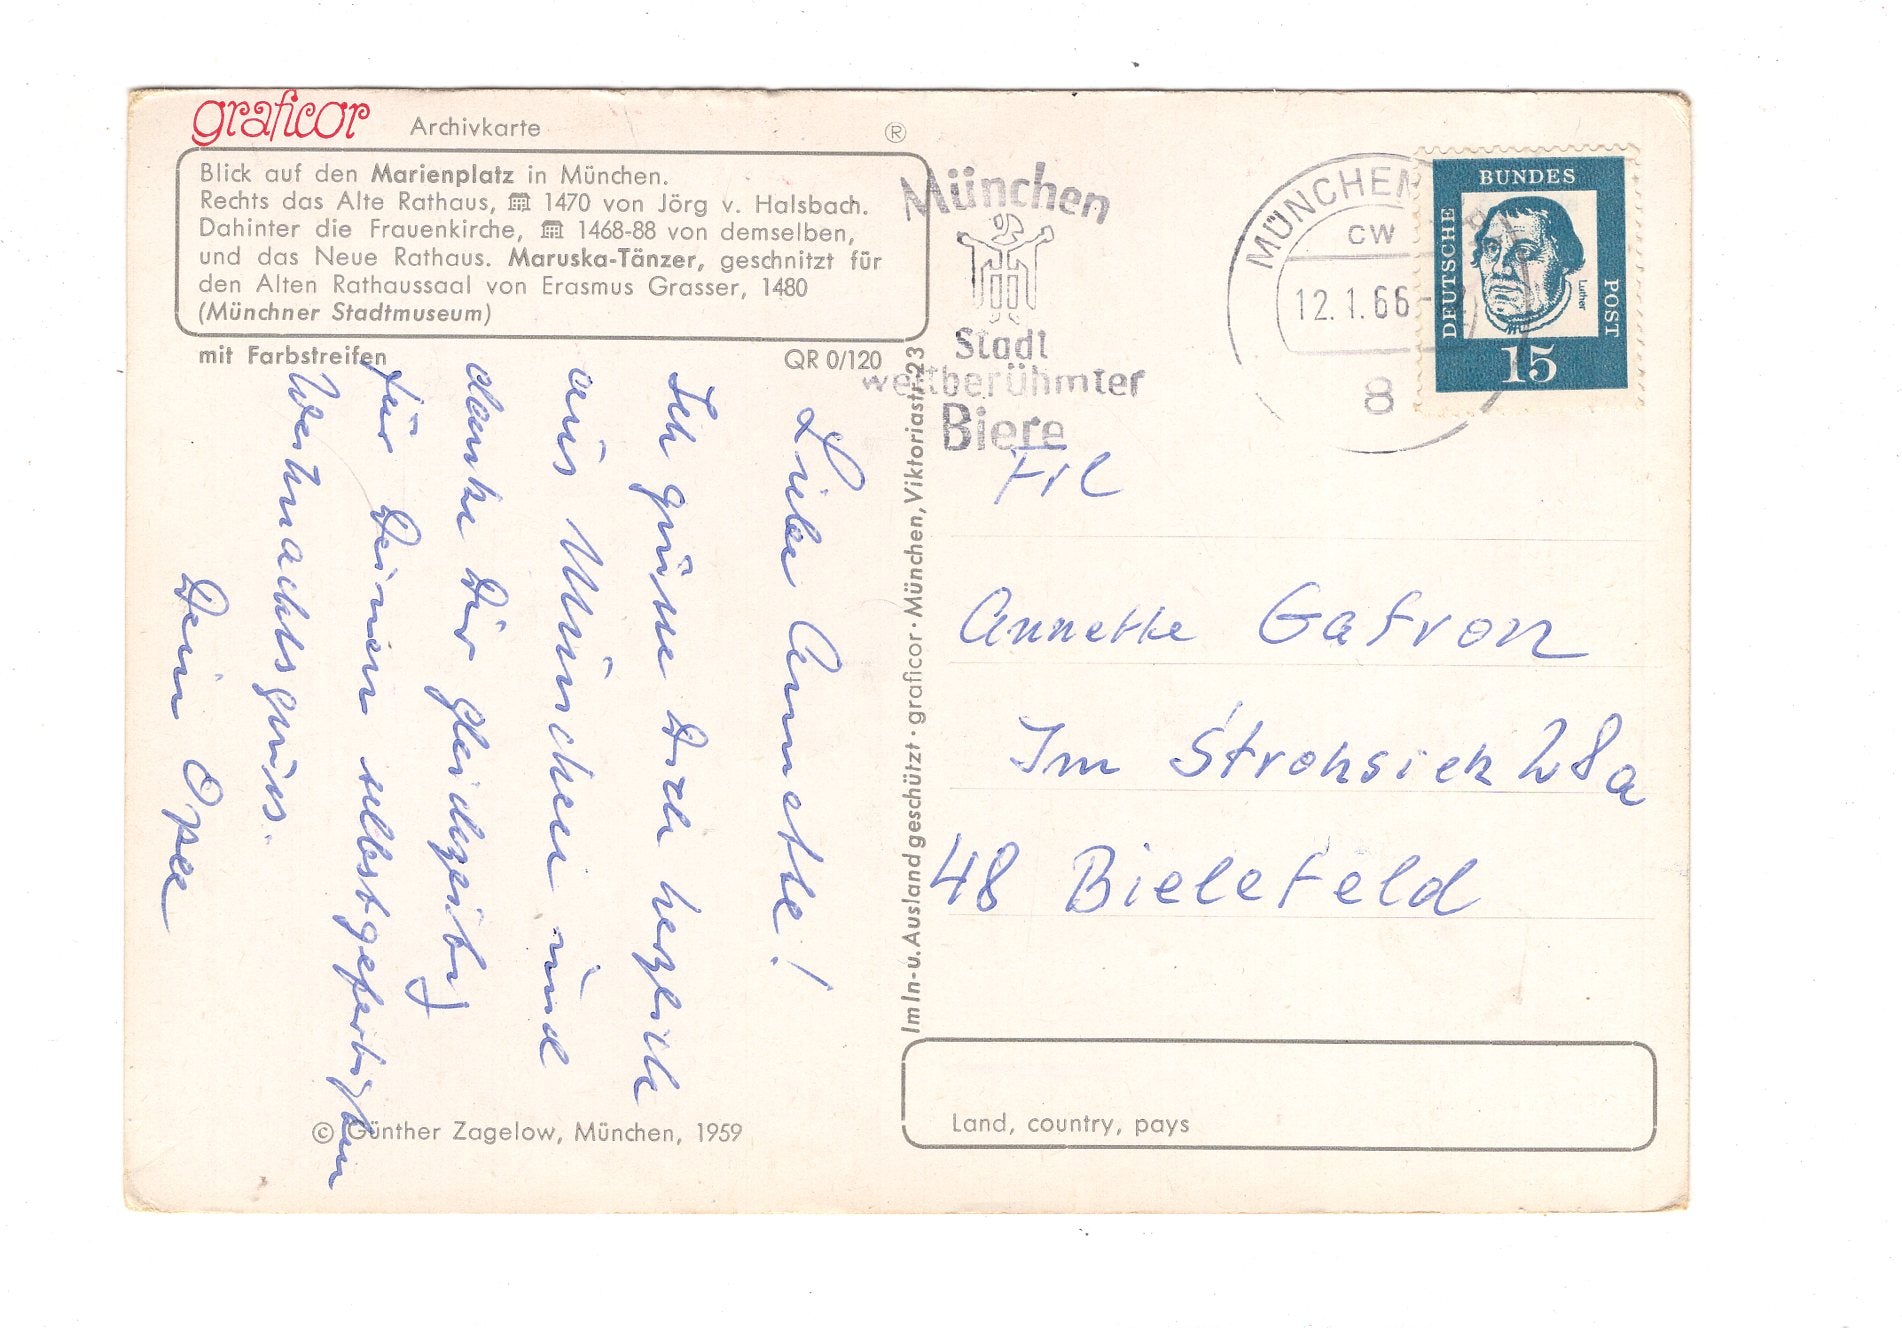 graficor Archivkarte ®
Blick auf den Marienplatz in München.
Rechts das Alte Rathaus, 1470 von Jörg v. Halsbach.
Dahinter die Frauenkirche, 1468-88 von demselben,
und das Neue Rathaus. Maruska-Tänzer, geschnitzt für
den Alten Rathaussaal von Erasmus Grasser, 1480
(Münchner Stadtmuseum)
mit Farbstreifen QR 0/120
Liebe Annette!
Ich grüsse Dich herzlich
aus München und
danke Dir gleichzeitig
für Deinen selbstgefertigten
Weihnachtsgruss.
Dein Opa
© Günther Zagelow, München, 1959
Im In- u. Ausland geschützt · graficor · München, Viktoriastr. 23
München
Stadt
weltberühmter
Biere
MÜNCHEN
CW
12.1.66-
8
DEUTSCHE
BUNDES
POST
Luther
15
Frl
Annette Gafron
Im Strohsiek 28a
48 Bielefeld
Land, country, pays